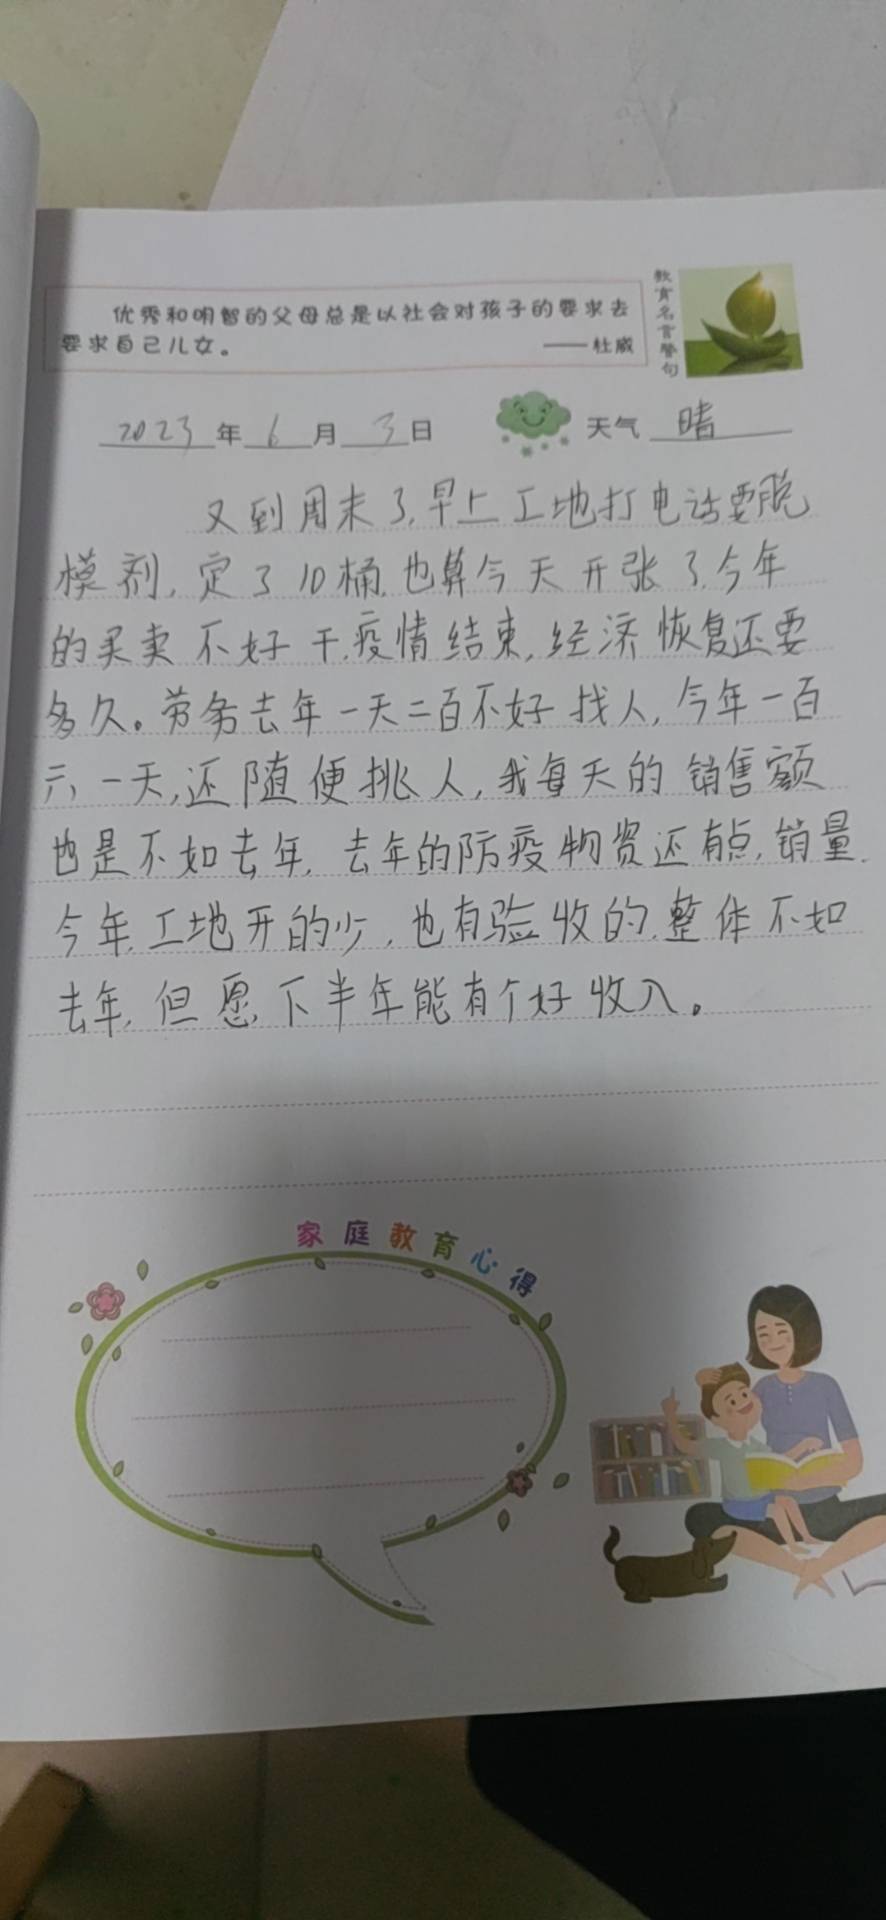 优秀和明智的父母总是以社会对孩子的要求去
要求自己儿女。
——杜威
教育名言警句
2023年6月3日
天气 晴
又到周末了,早上工地打电话要脱
模剂,定了10桶,也算今天开张了,今年
的买卖不好干,疫情结束,经济恢复还要
多久。劳务去年一天二百不好找人,今年一百
六一天,还随便挑人,我每天的销售额
也是不如去年,去年的防疫物资还有点,销量.
今年,工地开的少,也有验收的,整体不如
去年,但愿下半年能有个好收入。
家庭教育心得